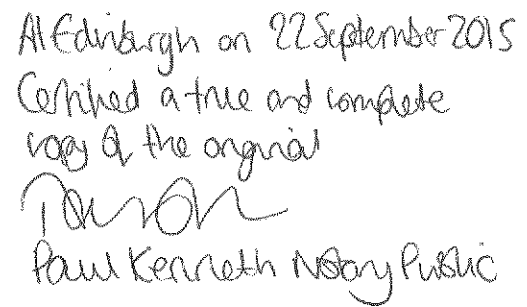 At Edinburgh on 22 September 2015
Certified a true and complete
copy of the original
Paul Kenneth Notary Public